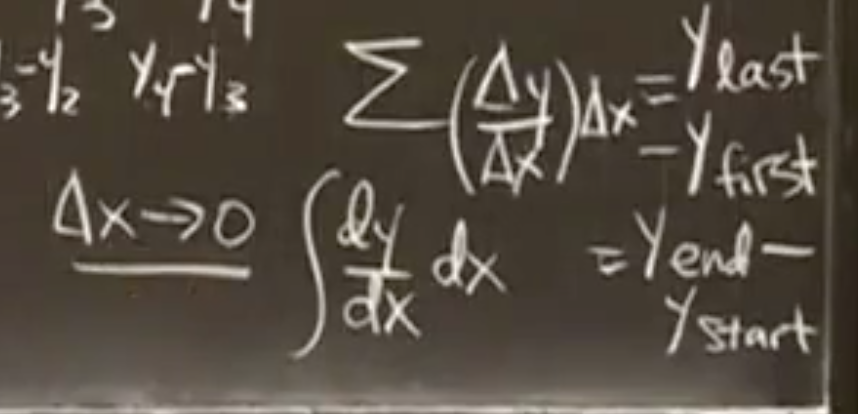 y₄-y₃
∑(Δy/Δx)Δx = y last
- y first
Δx→0 ∫ dy/dx dx = y end -
y start